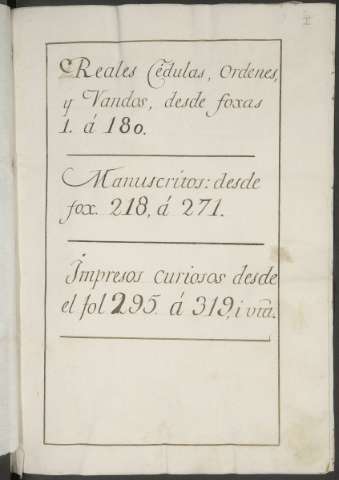 I
Reales Cedulas, Ordenes,
y Vandos, desde foxas
1. á 180.
Manuscritos: desde
fox. 218, á 271.
Impresos curiosos desde
el fol 295. á 319, i vta.